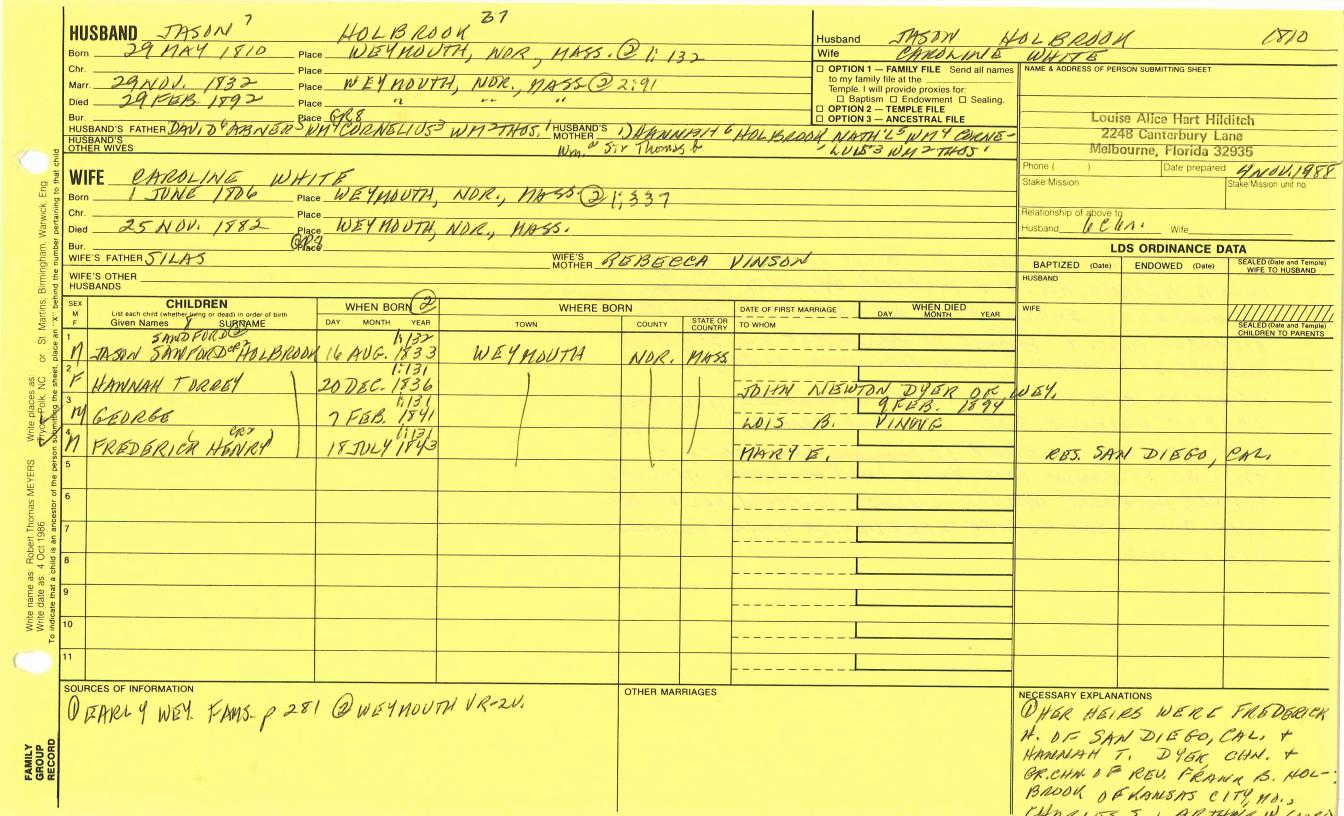 HUSBAND JASON 7 HOLBROOK 37
Born 29 MAY 1810 Place WEYMOUTH, NOR, MASS. ② 1:132
Chr. Place
Marr. 29 NOV. 1832 Place WEYMOUTH, NOR, MASS ② 2:91
Died 29 FEB 1892 Place " " "
Bur. Place GR8
HUSBAND'S FATHER DAVID 6 ABNER 5 WM 4 CORNELIUS 3 WM 2 THOS. 1 HUSBAND'S MOTHER HANNAH 6 HOLBROOK NATH'L 5 WM 4 CORNE-
HUSBAND'S OTHER WIVES Wm. Sir Thomas LUIS 3 WM 2 THOS 1
Husband JASON HOLBROOK 1810
Wife CAROLINE WHITE
OPTION 1 — FAMILY FILE Send all names
to my family file at the
Temple. I will provide proxies for:
Baptism Endowment Sealing.
OPTION 2 — TEMPLE FILE
OPTION 3 — ANCESTRAL FILE
NAME & ADDRESS OF PERSON SUBMITTING SHEET
Louise Alice Hart Hilditch
2248 Canterbury Lane
Melbourne, Florida 32935
Phone ( ) Date prepared 4 NOV. 1988
Stake Mission Stake Mission unit no.
Relationship of above to
Husband 6CUn. Wife
WIFE CAROLINE WHITE
Born 1 JUNE 1806 Place WEYMOUTH, NOR., MASS ② 1:337
Chr. Place
Died 25 NOV. 1882 Place WEYMOUTH, NOR., MASS.
Bur. Place GR8
WIFE'S FATHER SILAS WIFE'S MOTHER REBECCA VINSON
WIFE'S OTHER HUSBANDS
LDS ORDINANCE DATA
BAPTIZED (Date) ENDOWED (Date) SEALED (Date and Temple) WIFE TO HUSBAND
HUSBAND
WIFE
SEALED (Date and Temple) CHILDREN TO PARENTS
SEX M F CHILDREN WHEN BORN ② WHERE BORN DATE OF FIRST MARRIAGE WHEN DIED
List each child (whether living or dead) in order of birth
Given Names 8 SURNAME DAY MONTH YEAR TOWN COUNTY STATE OR COUNTRY TO WHOM DAY MONTH YEAR
SANDFORD ② 1:132
1 M JASON SANFORD GR7 HOLBROOK 16 AUG. 1833 WEYMOUTH NOR. MASS
1:131
2 F HANNAH TORREY 20 DEC. 1836 JOHN NEWTON DYER OF WEY.
1:131 9 FEB. 1894
3 M GEORGE 7 FEB. 1841 LOIS B. VINING
GR7 1:131
4 M FREDERICK HENRY 18 JULY 1843 MARY E. RES. SAN DIEGO, CAL.
5
6
7
8
9
10
11
SOURCES OF INFORMATION
① EARLY WEY. FAMS. p 281 ② WEYMOUTH VR-2V.
OTHER MARRIAGES
NECESSARY EXPLANATIONS
① HER HEIRS WERE FREDERICK
H. OF SAN DIEGO, CAL. +
HANNAH T. DYER CHN. +
GR.CHN. OF REV. FRANK B. HOL-
BROOK OF KANSAS CITY, MO.,
Write name as Robert Thomas MEYERS Write places as
Write date as 4 Oct 1986 Tryon, Polk, NC or St. Martins, Birmingham, Warwick, Eng
To indicate that a child is an ancestor of the person submitting the sheet, place an "X" behind the number pertaining to that child
FAMILY
GROUP
RECORD